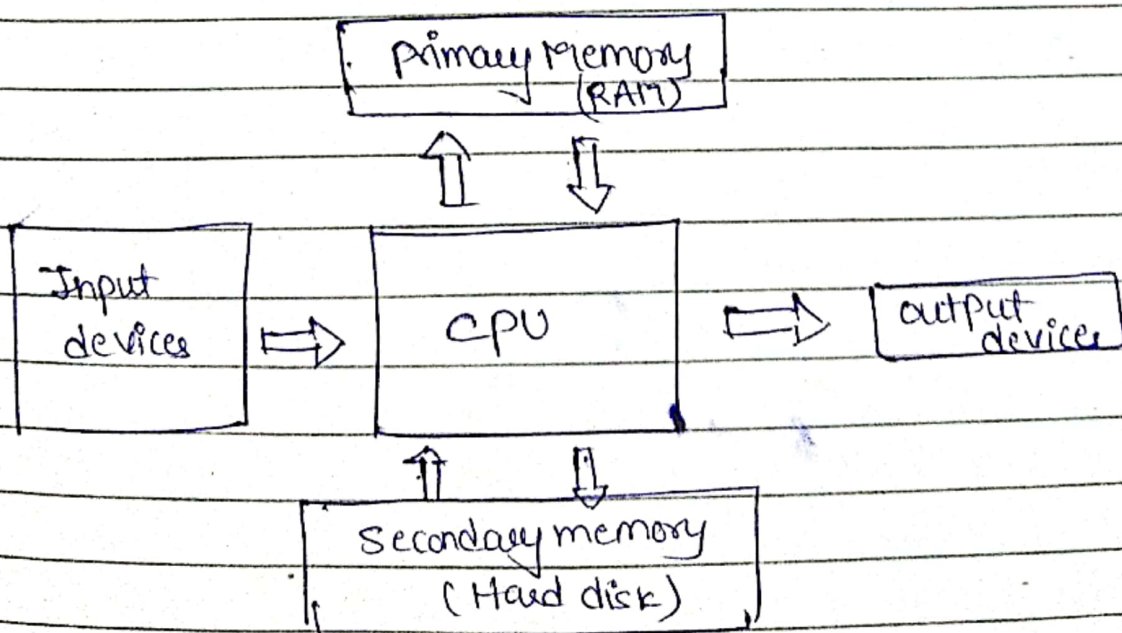 Primary Memory
(RAM)
Input
devices
CPU
output
devices
Secondary memory
(Hard disk)